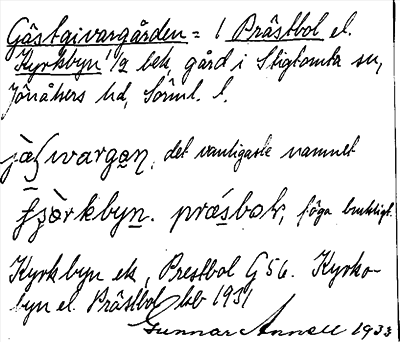 Gästgivargården = 1 Prästbol el.
Kyrkbyn 1/2 bek, gård i Stigtomta sn,
Jönåkers hd, Söml. l.
wargen, det vanligaste namnet
prǽsboɫ, föga brukligt.
Kyrkbyn ek, Prestbol G 56. Kyrko-
byn el. Prästbol lbb 1931
Gunnar Annell 1933